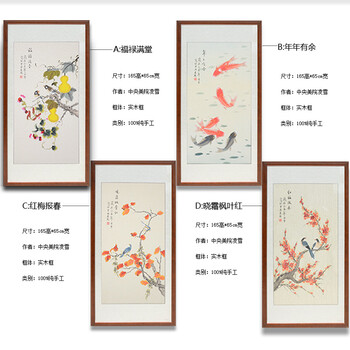 A:福禄满堂
尺寸：165高*65cm宽
作者：中央美院凌雪
框体：实木框
类别：100%纯手工
B:年年有余
尺寸：165高*65cm宽
作者：中央美院凌雪
框体：实木框
类别：100%纯手工
C:红梅报春
尺寸：165高*65cm宽
作者：中央美院凌雪
框体：实木框
类别：100%纯手工
D:晓霜枫叶红
尺寸：165高*65cm宽
作者：中央美院凌雪
框体：实木框
类别：100%纯手工